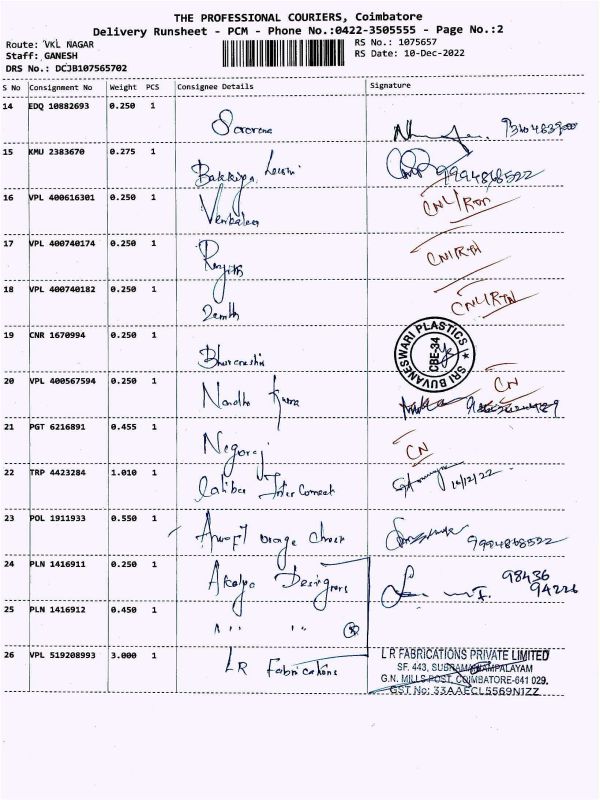 THE PROFESSIONAL COURIERS, Coimbatore
Delivery Runsheet - PCM - Phone No.:0422-3505555 - Page No.:2
Route: VKL NAGAR
Staff: GANESH
DRS No.: DCJB107565702
RS No.: 1075657
RS Date: 10-Dec-2022
S No Consignment No Weight PCS Consignee Details Signature
14 EDQ 10882693 0.250 1
15 KMU 2383670 0.275 1 Bakkiya 9994868522
16 VPL 400616301 0.250 1 CNL/RTN
17 VPL 400740174 0.250 1 Ranjith
18 VPL 400740182 0.250 1 CNL/RTN
19 CNR 1670994 0.250 1 SRI BUVANESWARI PLASTICS CBE-34
20 VPL 400567594 0.250 1 Nandha CN
21 PGT 6216891 0.455 1 CN
22 TRP 4423284 1.010 1 Caliber Interconnect
23 POL 1911933 0.550 1 9994868522
24 PLN 1416911 0.250 1 Akalya Designers 98436
94226
25 PLN 1416912 0.450 1 " "
26 VPL 519208993 3.000 1 LR Fabrications
L R FABRICATIONS PRIVATE LIMITED
SF. 443, SUBRAMANIAMPALAYAM
G.N. MILLS POST, COIMBATORE-641 029.
GST No: 33AAECL5569N1ZZ